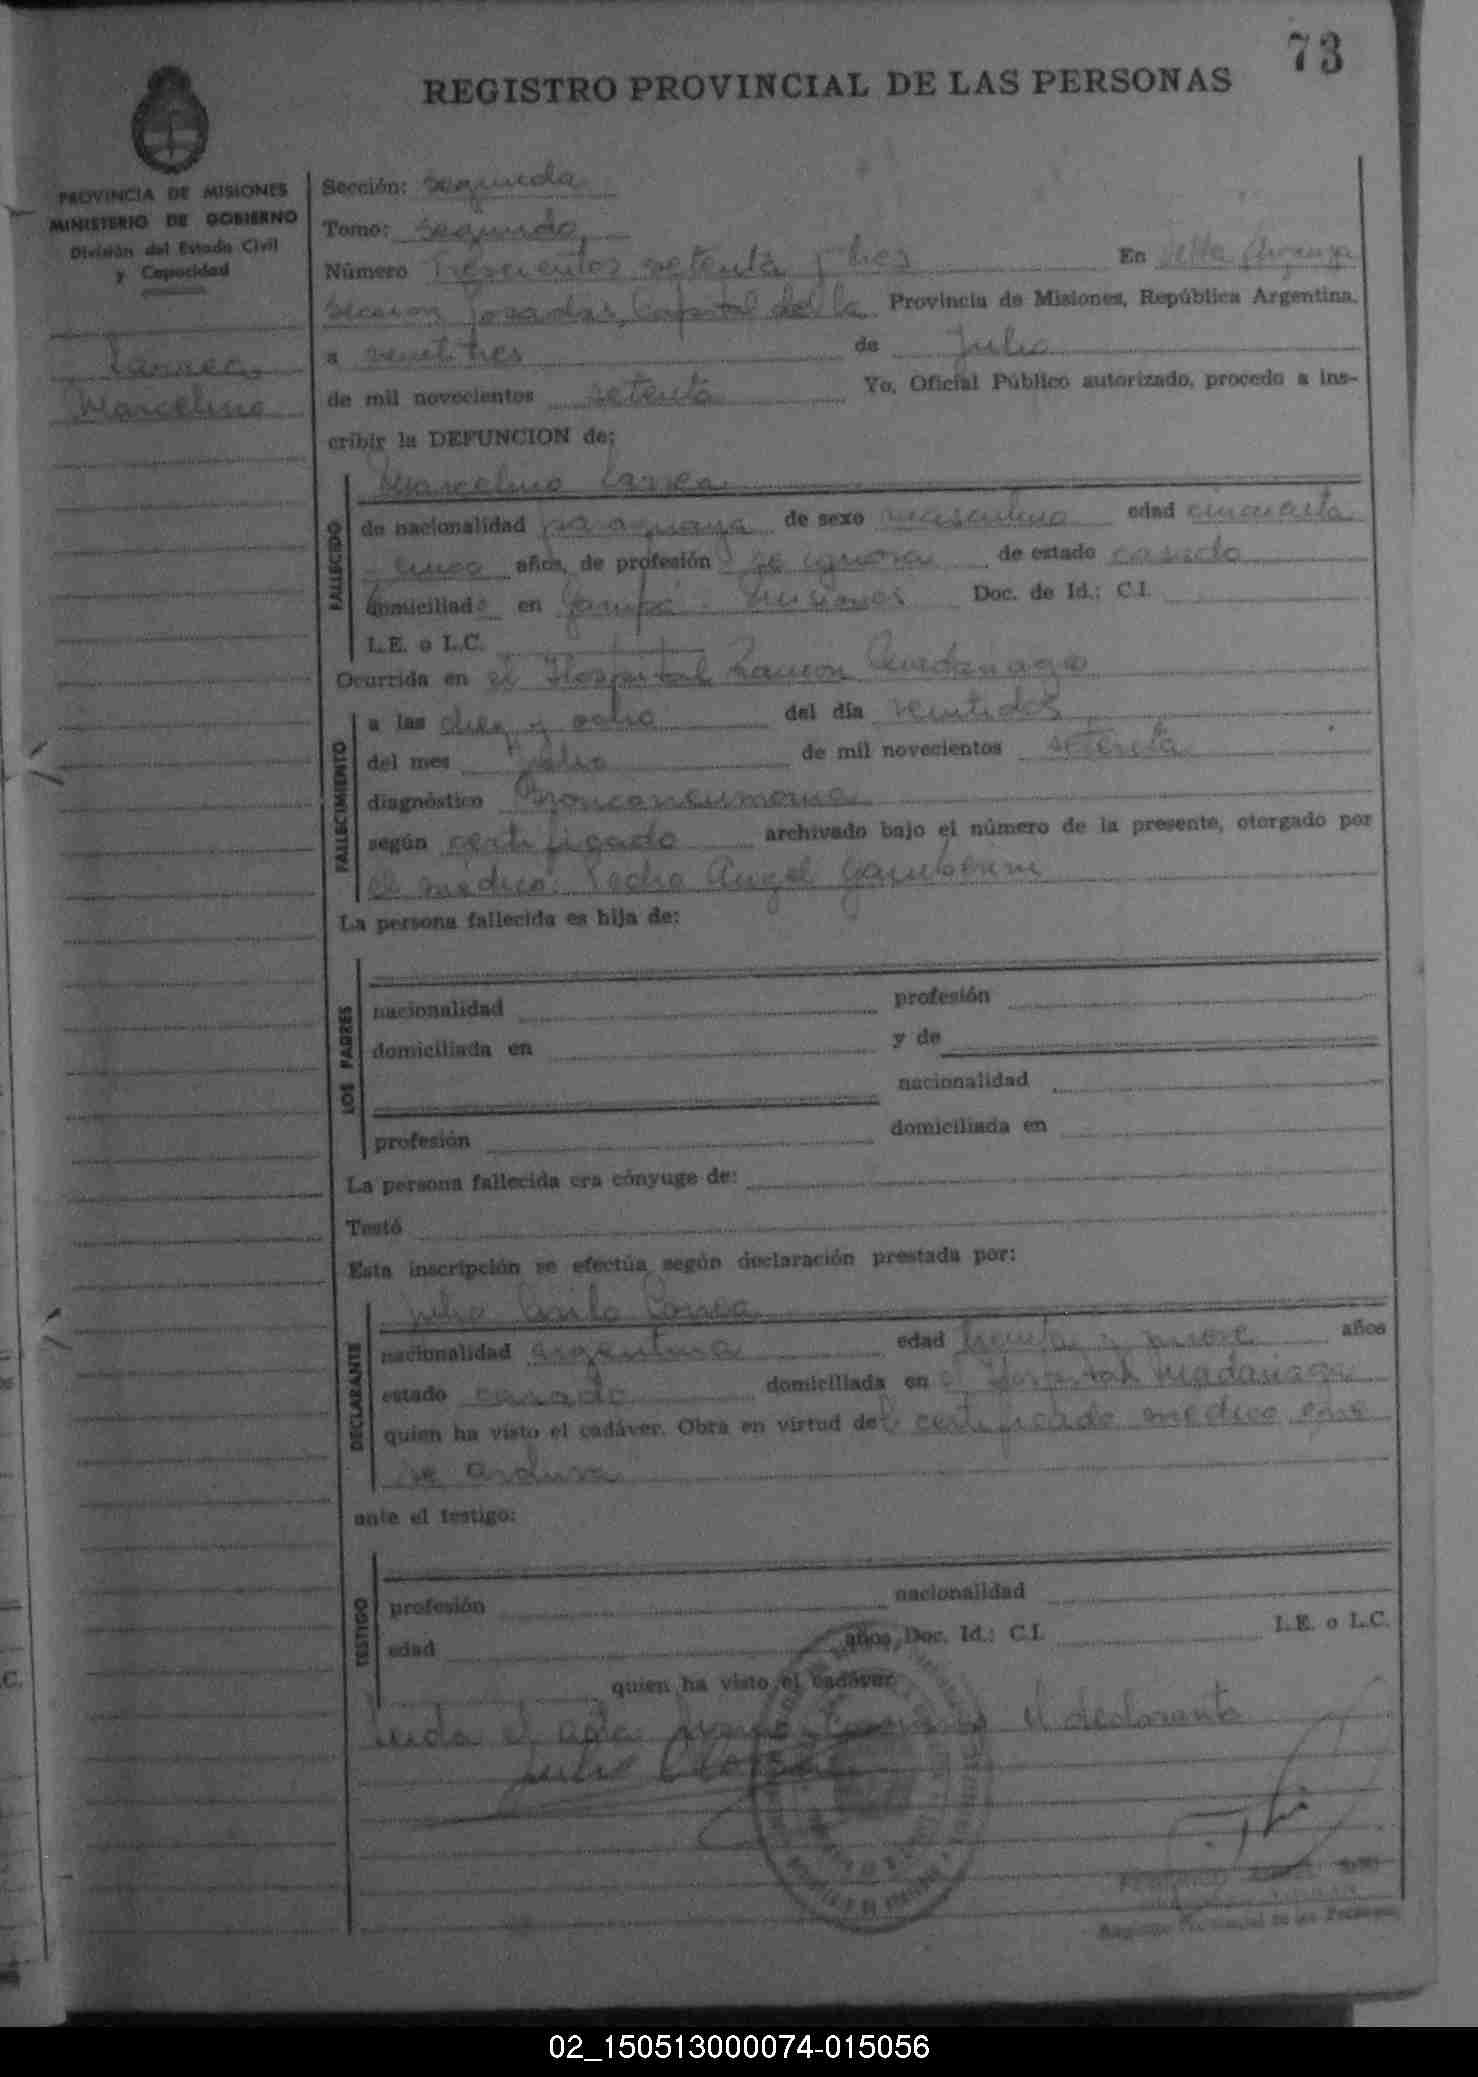 73
REGISTRO PROVINCIAL DE LAS PERSONAS
PROVINCIA DE MISIONES
MINISTERIO DE GOBIERNO
División del Estado Civil
y Capacidad
Larrea
Marcelino
Sección: segunda
Tomo: segundo
Número Trescientos setenta y tres En Villa
sección Posadas, Capital de la Provincia de Misiones, República Argentina,
a veintitres de Julio
de mil novecientos setenta Yo, Oficial Público autorizado, procedo a ins-
cribir la DEFUNCION de:
Marcelino Larrea
FALLECIDO
de nacionalidad paraguaya de sexo masculino edad cincuenta
cinco años, de profesión se ignora de estado casado
domiciliado en Garupá - Misiones Doc. de Id.: C.I.
L.E. o L.C.
Ocurrida en el Hospital Ramón Madariaga
FALLECIMIENTO
a las diez y ocho del día veintidos
del mes Julio de mil novecientos setenta
diagnóstico Bronconeumonia
según certificado archivado bajo el número de la presente, otorgado por
el médico: Pedro Angel Gamberini
La persona fallecida es hija de:
LOS PADRES
nacionalidad profesión
domiciliada en y de
nacionalidad
profesión domiciliada en
La persona fallecida era cónyuge de:
Testó
Esta inscripción se efectúa según declaración prestada por:
DECLARANTE
Julio Correa
nacionalidad argentina edad treinta y nueve años
estado casado domiciliada en el Hospital Madariaga
quien ha visto el cadáver. Obra en virtud del certificado médico que
se archiva
ante el testigo:
TESTIGO
profesión nacionalidad
edad años, Doc. Id.: C.I. L.E. o L.C.
quien ha visto el cadáver
Leida el acta el declarante
Registro Provincial de las Personas
02_150513000074-015056